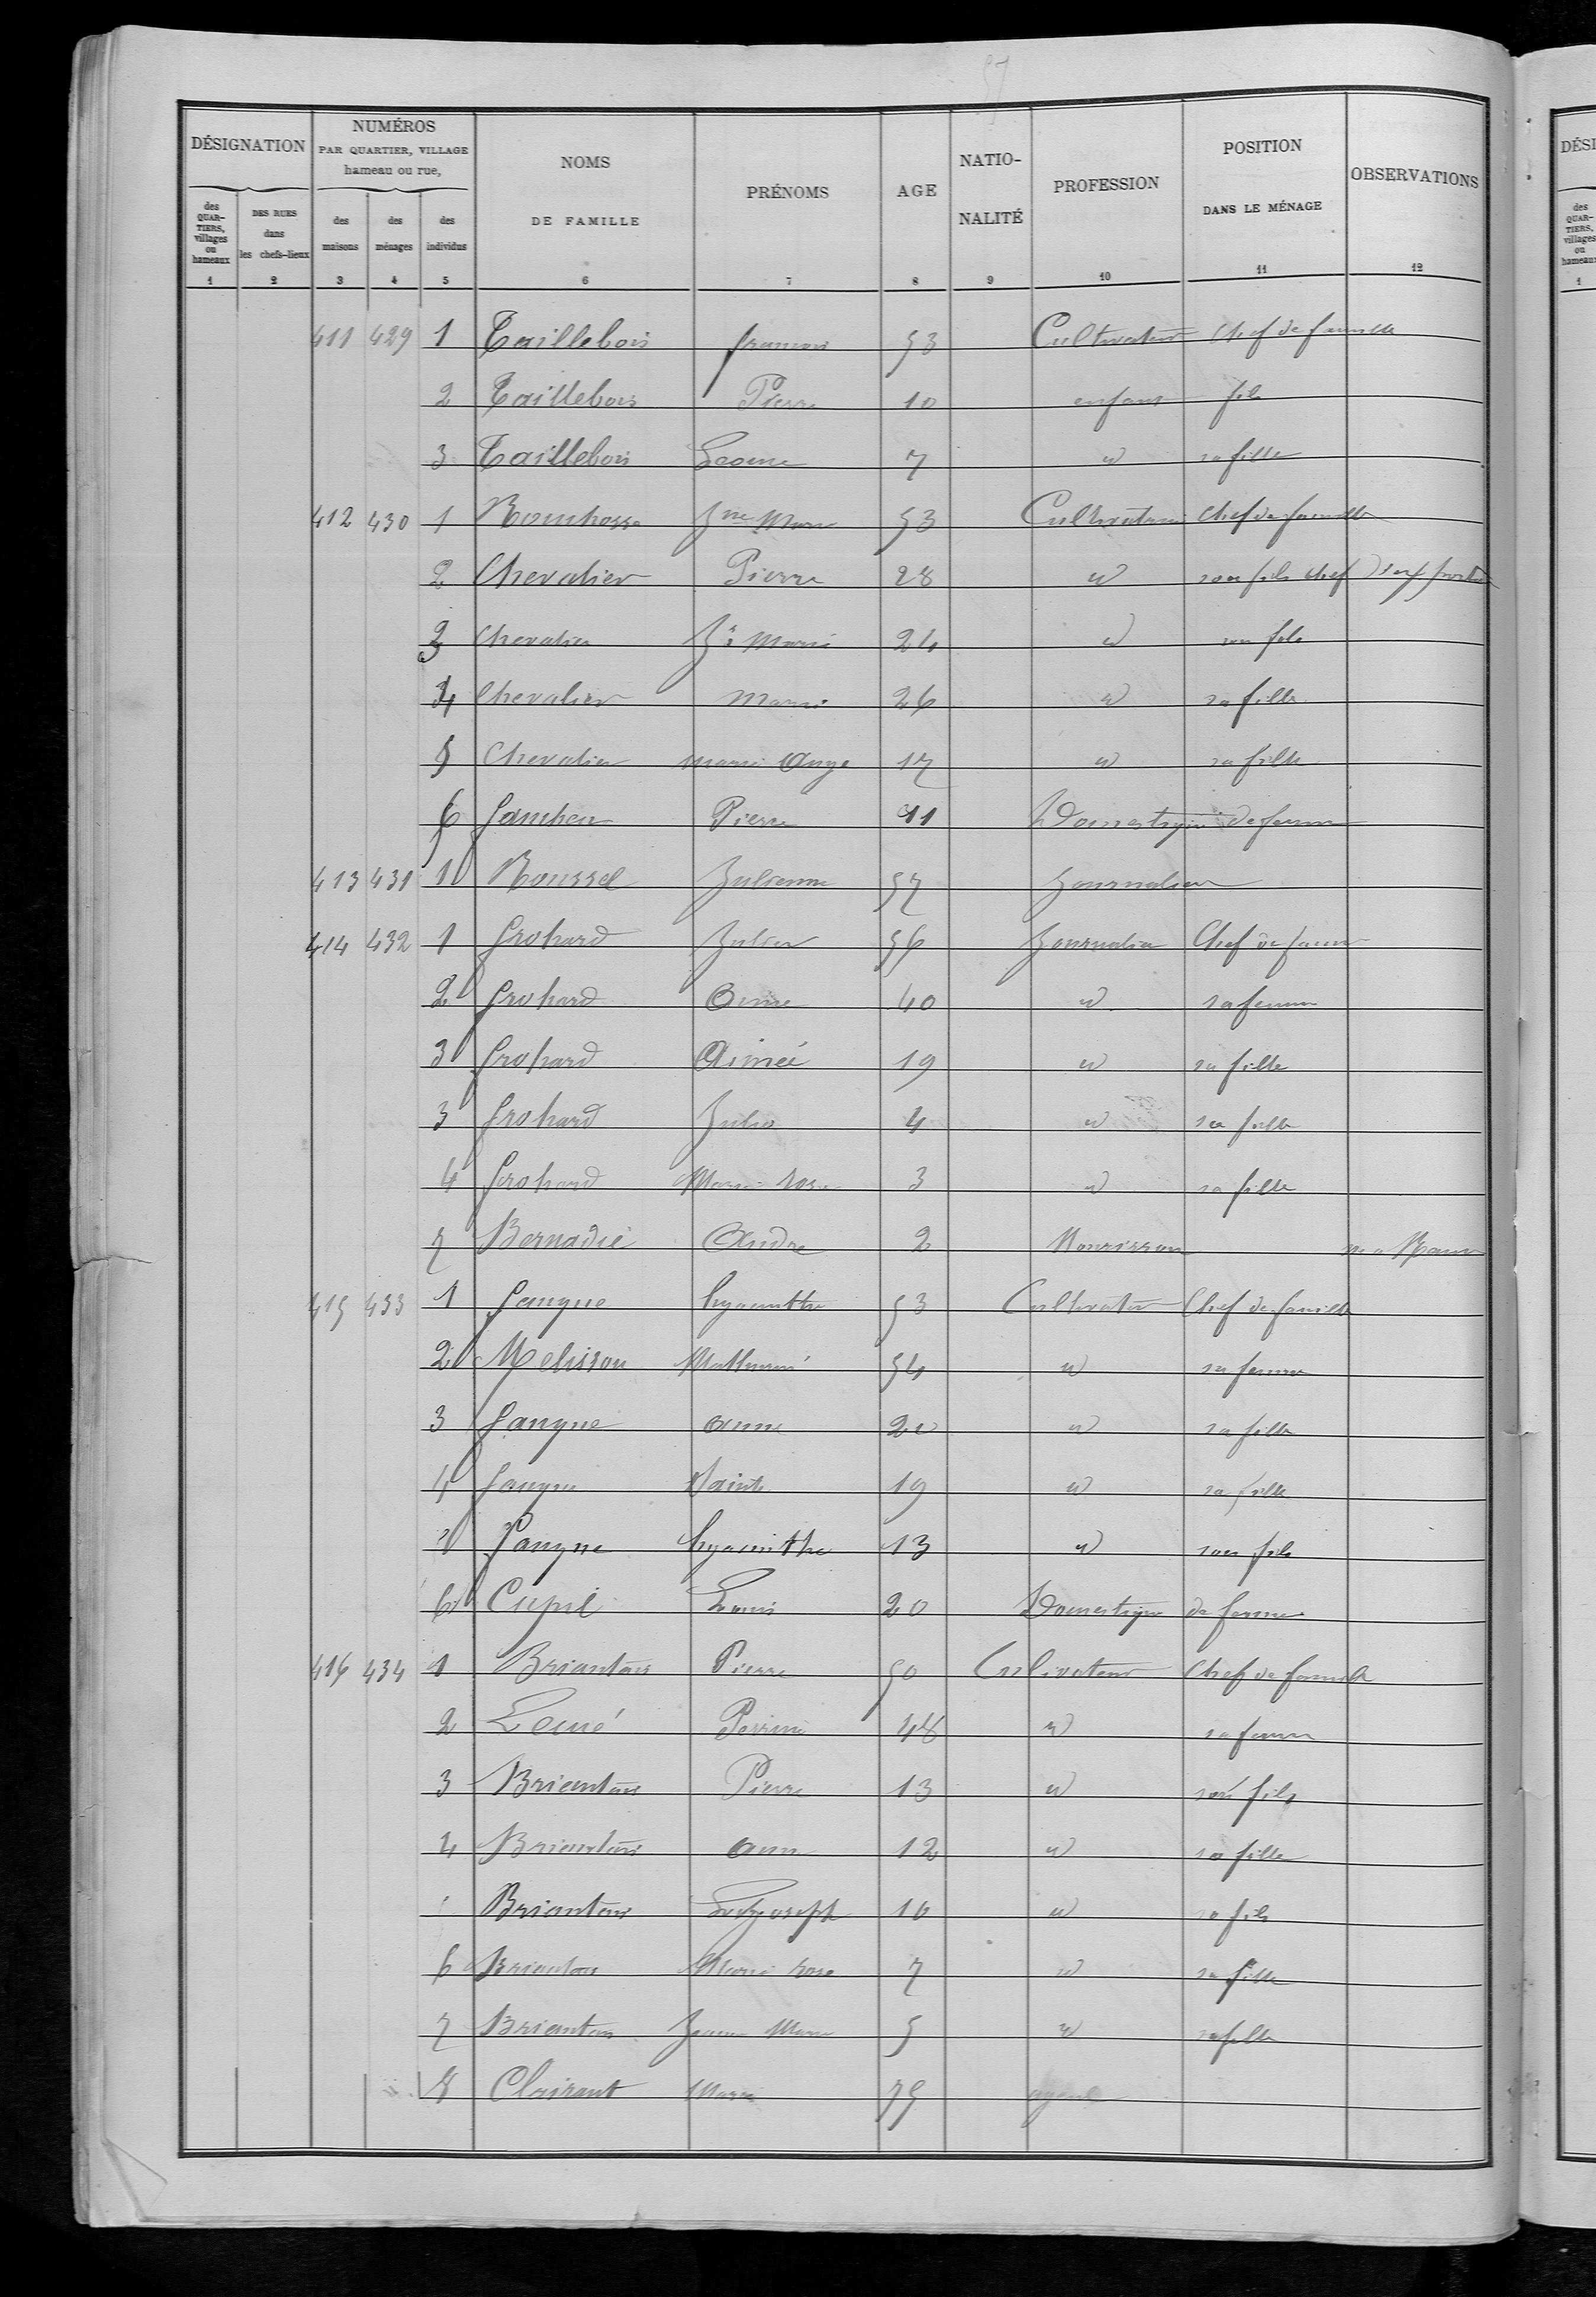 57
DÉSIGNATION
NUMÉROS
PAR QUARTIER, VILLAGE
hameau ou rue,
NOMS
DE FAMILLE
PRÉNOMS
AGE
NATIO-
NALITÉ
PROFESSION
POSITION
DANS LE MÉNAGE
OBSERVATIONS
des QUAR-TIERS, villages ou hameaux
DES RUES dans les chefs-lieux
des maisons
des ménages
des individus
1 2 3 4 5 6 7 8 9 10 11 12
411 429 1 Taillebois francois 53 Cultivateur Chef de famille
2 Taillebois Pierre 10 enfant fils
3 Taillebois Leonie 7 id sa fille
412 430 1 Jne Marie 53 Cultivatrice Chef de famille
2 Chevalier Pierre 28 id son fils chef
3 Chevalier Marie 24 id son fils
4 Chevalier Marie 26 id sa fille
5 Chevalier Marie Ange 17 id sa fille
6 Pierre 11 Domestique de ferme
413 431 1 Roussel Julienne 57 Journalier
414 432 1 Grohard Julien 56 Journalier Chef de fam
2 Grohard Anne 40 id sa femme
3 Grohard Aimée 19 id sa fille
3 Grohard Julie 4 id sa fille
4 Grohard Marie rose 3 id sa fille
7 Bernadié Andre 2 Nourisson
415 433 1 Gaugne hyacinthe 53 Cultivateur Chef de famille
2 Melisson Mathurine 54 id sa femme
3 Gaugne anne 20 id sa fille
4 Gaugne Sainte 19 id sa fille
Gaugne hyacinthe 13 id son fils
6 Cupil Louis 20 Domestique de ferme
416 434 1 Briantais Pierre 50 Culivateur Chef de famille
2 Lemé Perrine 48 id sa femme
3 Briantais Pierre 13 id son fils
4 Briantais ann 12 id sa fille
Briantais Joseph 10 id so fils
6 Briantais Marie rose 7 id sa fille
7 Briantais Jeanne Marie 5 id sa fille
8 Clairant Marie 75
DÉSI
des QUAR-TIERS, villages ou hameaux
1